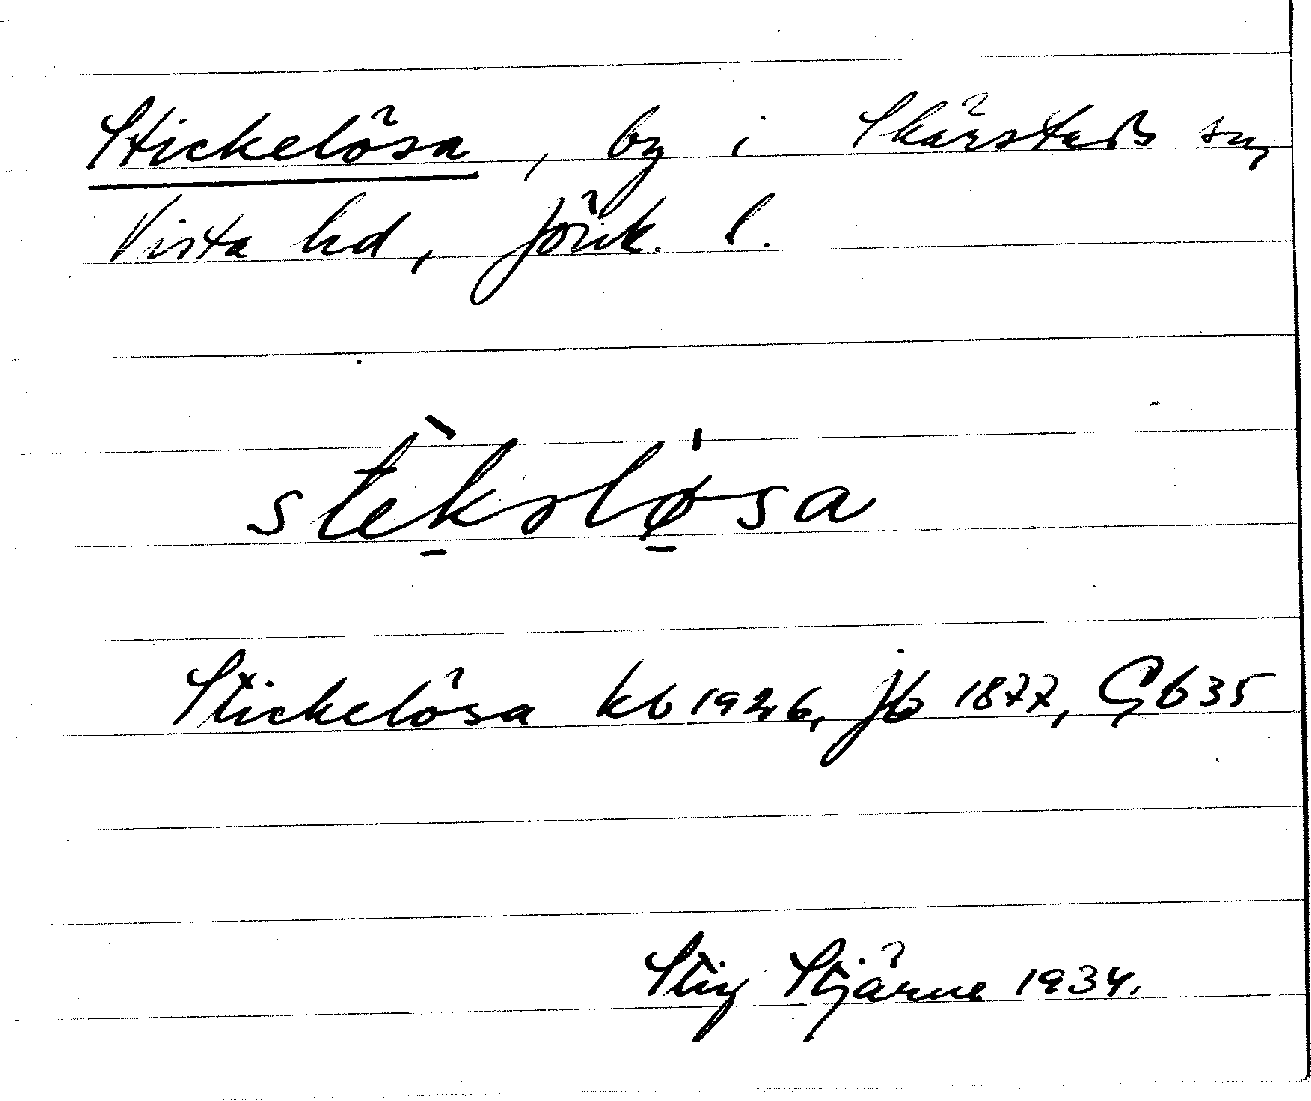 Stickelösa, by i Skärstads sn,
Vista hd, Jönk. l.
stèkəlø̱sa
Stickelösa kb 1926, jb 1877, Gb 35
Stig Stjärne 1934.